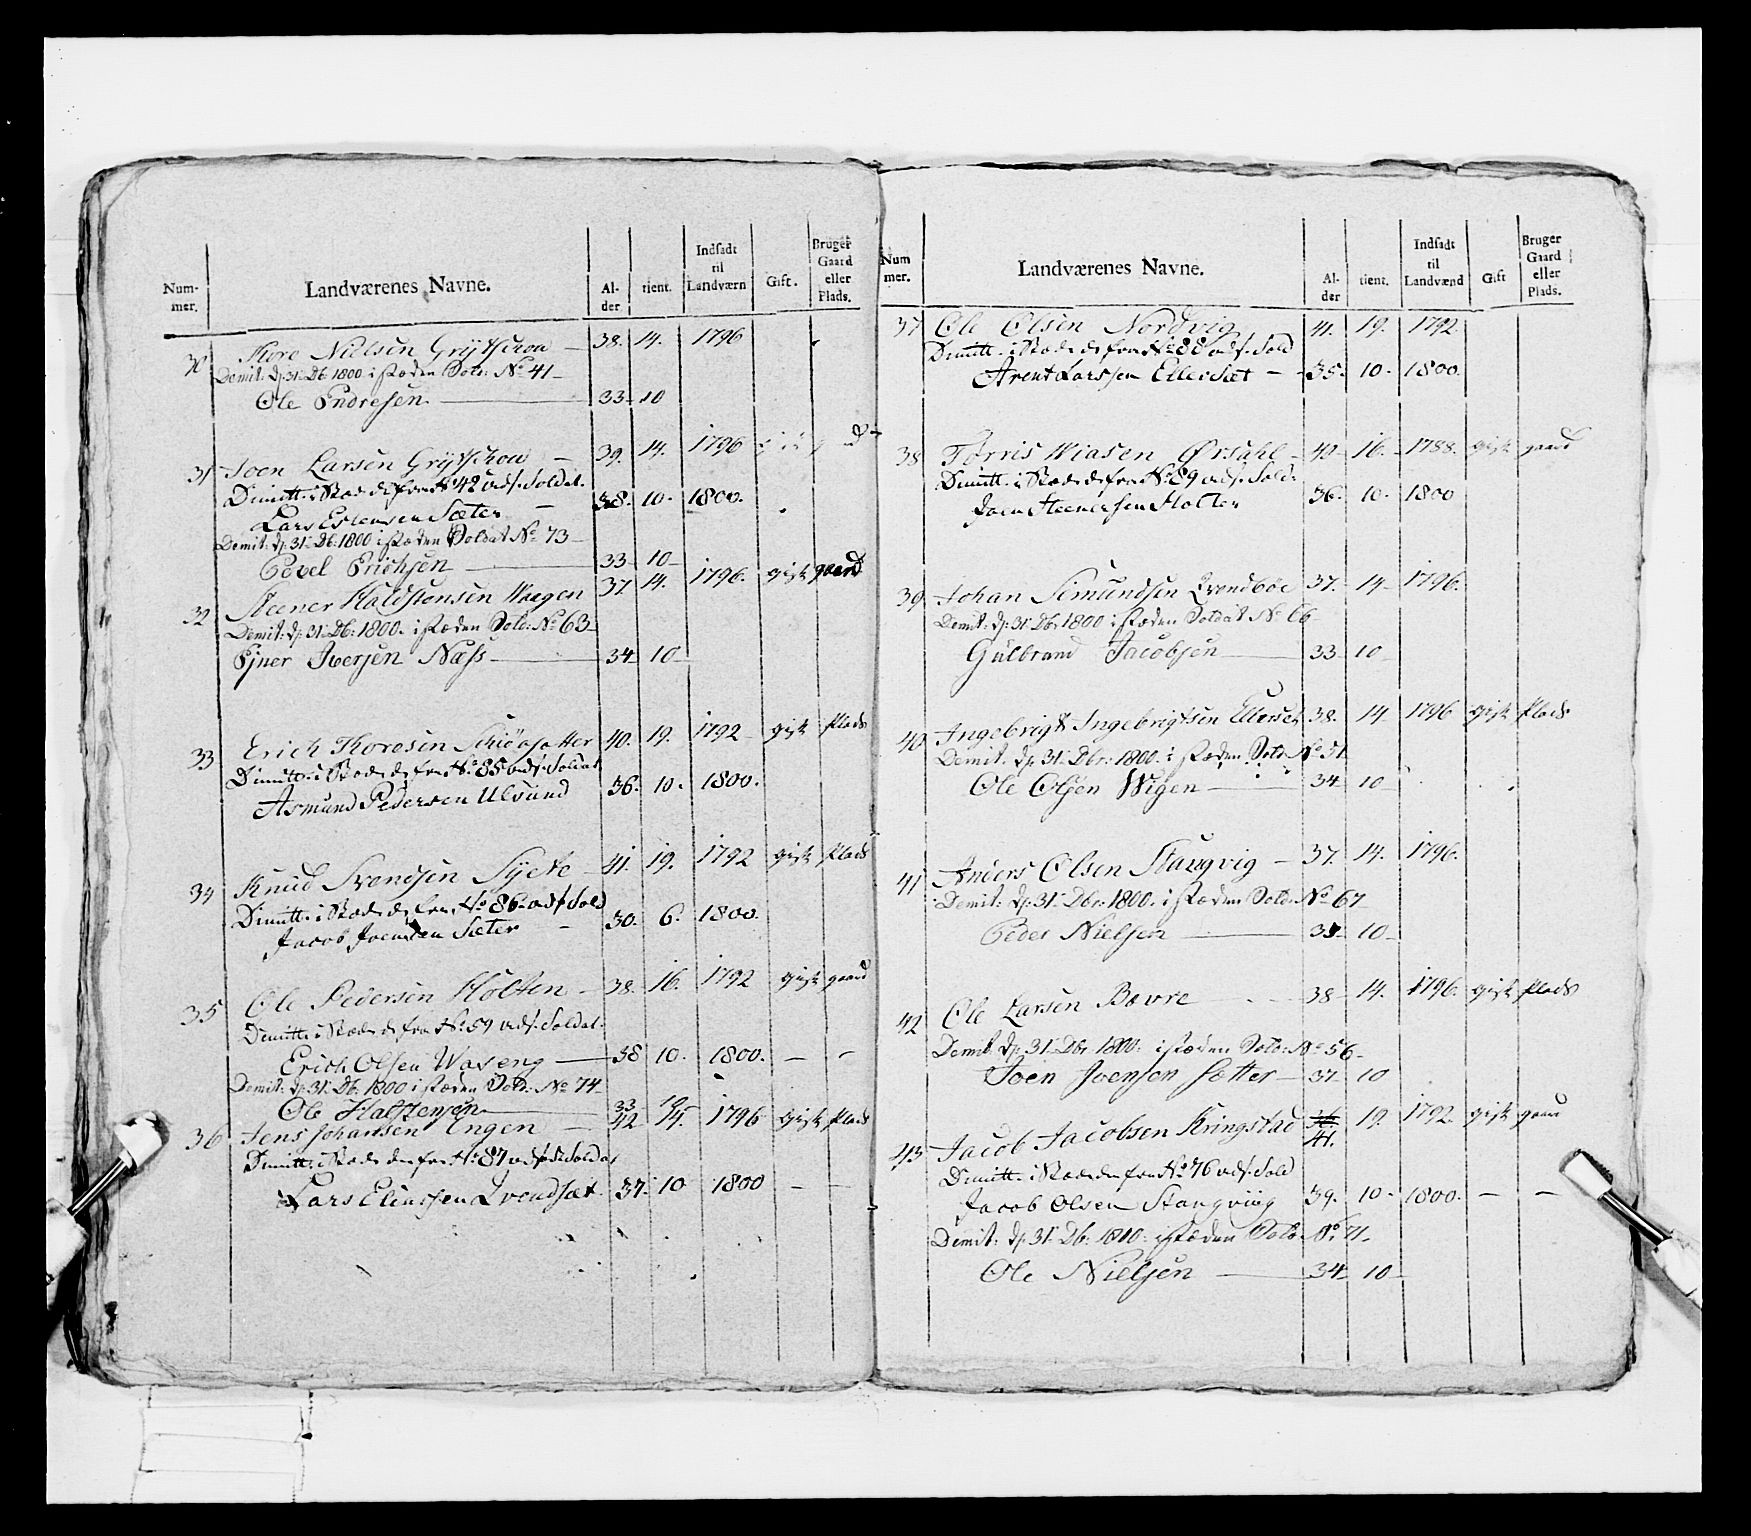 Num-
mer.
Landværenes Navne.
Al-
der
tient.
Indsadt
til
Landværn
Gift.
Bruger
Gaard
eller
Plads.
30 Thore Nielsen 38. 14. 1796
Demit: d: 31 Db: 1800 i stæden Sold: No 41
Ole Endresen 33 10
31 Joen Larsen 39. 14. 1796
Dimitt: i Stæde fra No 42 Soldat.
Lars Estensen Sæter 38. 10. 1800.
Demit: d: 31 Db: 1800 i stæden Soldat No 73
Povel Erichsen 33 10
32 Steener Haldstensen Haagen 37 14. 1796. gift gaard
Demit: d: 31 Db: 1800. i stæden Sold: No 63
Ejner Iversen Næss 34 10
33 Erich Thoresen 40. 19. 1792 gift plads
Dimitt: i Stæde fra No 85 Soldat
Asmund Pedersen Ulsund 36. 10. 1800.
34 Knud Svendsen 41. 19. 1792 gift plads
Dimitt: i Stæde fra No 86 Sold
Jacob Joensen Sæter 30. 6. 1800.
35 Ole Pedersen Holten 38. 16. 1792 gift gaard
Dimitt: i Stæde fra No 59 Soldat.
Erich Olsen Waseng 38 10. 1800.
Demit: d: 31 Db: 1800 i stæden Sold: No 74
Ole Halstensen 33 10
36 Jens Johansen Engen 42 14. 1796 gift plads
Dimitt: i Stæde fra No 87 Soldat
Lars Elingsen 37. 10 1800
Num
mer.
Landværenes Navne.
Al-
der
tient.
Indsadt
til
Landværnd
Gift
Bruger
Gaard
eller
Plads.
37 Ole Olsen Nordvig 41. 19. 1792
Dimitt: i Stæde fra No 88 Sold
Arent Larssen Ellersæt 35. 10. 1800.
38 Torris 42 16. 1788. gift gaard
Dimitt: i Stæde fra No 89 Sold:
Joen Steenersen Holten 36. 10. 1800
39 Johan Simundsen 37. 14 1796.
Demit: d: 31 Db: 1800 i stæden Soldat No 66
Gulbrand Jacobsen 33 10
40 Ingebrigt Ingebrigtsen Ellerset 38. 14 1796 gift plads
Demit: d: 31 Dbr: 1800. i stæden Sold: No 51
Ole Olsen Wigen 34 10
41 Anders Olsen Stangvig 37. 14. 1796.
Demit: d: 31 Dbr: 1800. i stæden Sold: No 67
Peder Nielsen 10
42 Ole Larsen Bævre 38 14. 1796. gift plads
Demit: d: 31 Dbr 1800: i stæden Sold: No 56
Joen Joensen Sætter 37 10
43 Jacob Jacobsen Kringstad 36 41. 19. 1792. gift gaard
Dimitt: i Stæden fra No 76 Sold
Jacob Olsen Stangviig 39. 10. 1800.
Demit: d: 31 Db: 1800: i stæden Sold: No 71.
Ole Nielsen 34 10